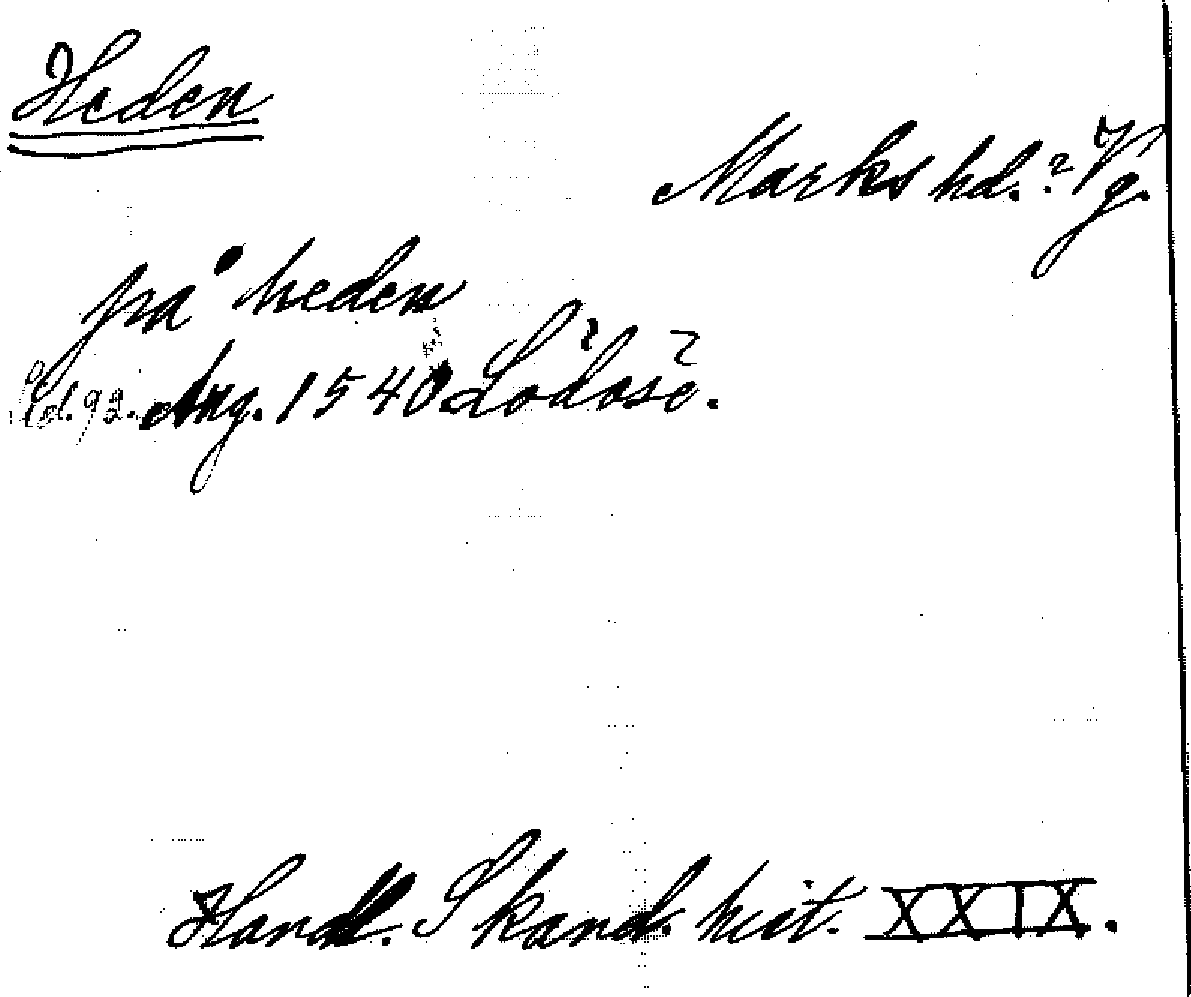 Heden
Marks hd.? Vg.
på heden
Sd. 92. Aug. 1540 Lödöse.
Handl. Skand. hist. XXIX.